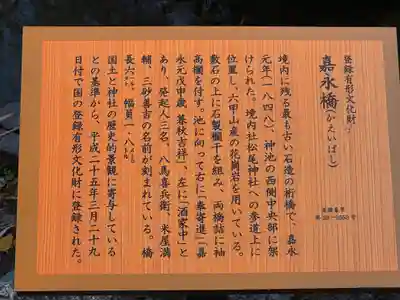 登録有形文化財
嘉永橋(かえいばし)
境内に残る最も古い石造の桁橋で、嘉永
元年(一八四八)、神池の西側中央部に架
けられた。境内社松尾神社への参道上に
位置し、六甲山産の花崗岩を用いている。
敷石の上に石製欄干を組み、両橋詰に袖
高欄を付す。池に向って右に「奉寄進」「嘉
永元戊申歳 暮秋吉祥」、左に「酒家中」と
あり、発起人三名、八馬喜兵衛、米屋満
輔、三砂善吉の名前が刻まれている。橋
長六メートル、幅員一・八メートル。
国土と神社の歴史的景観に寄与している
との基準から、平成二十五年三月二十九
日付で国の登録有形文化財に登録された。
登録番号